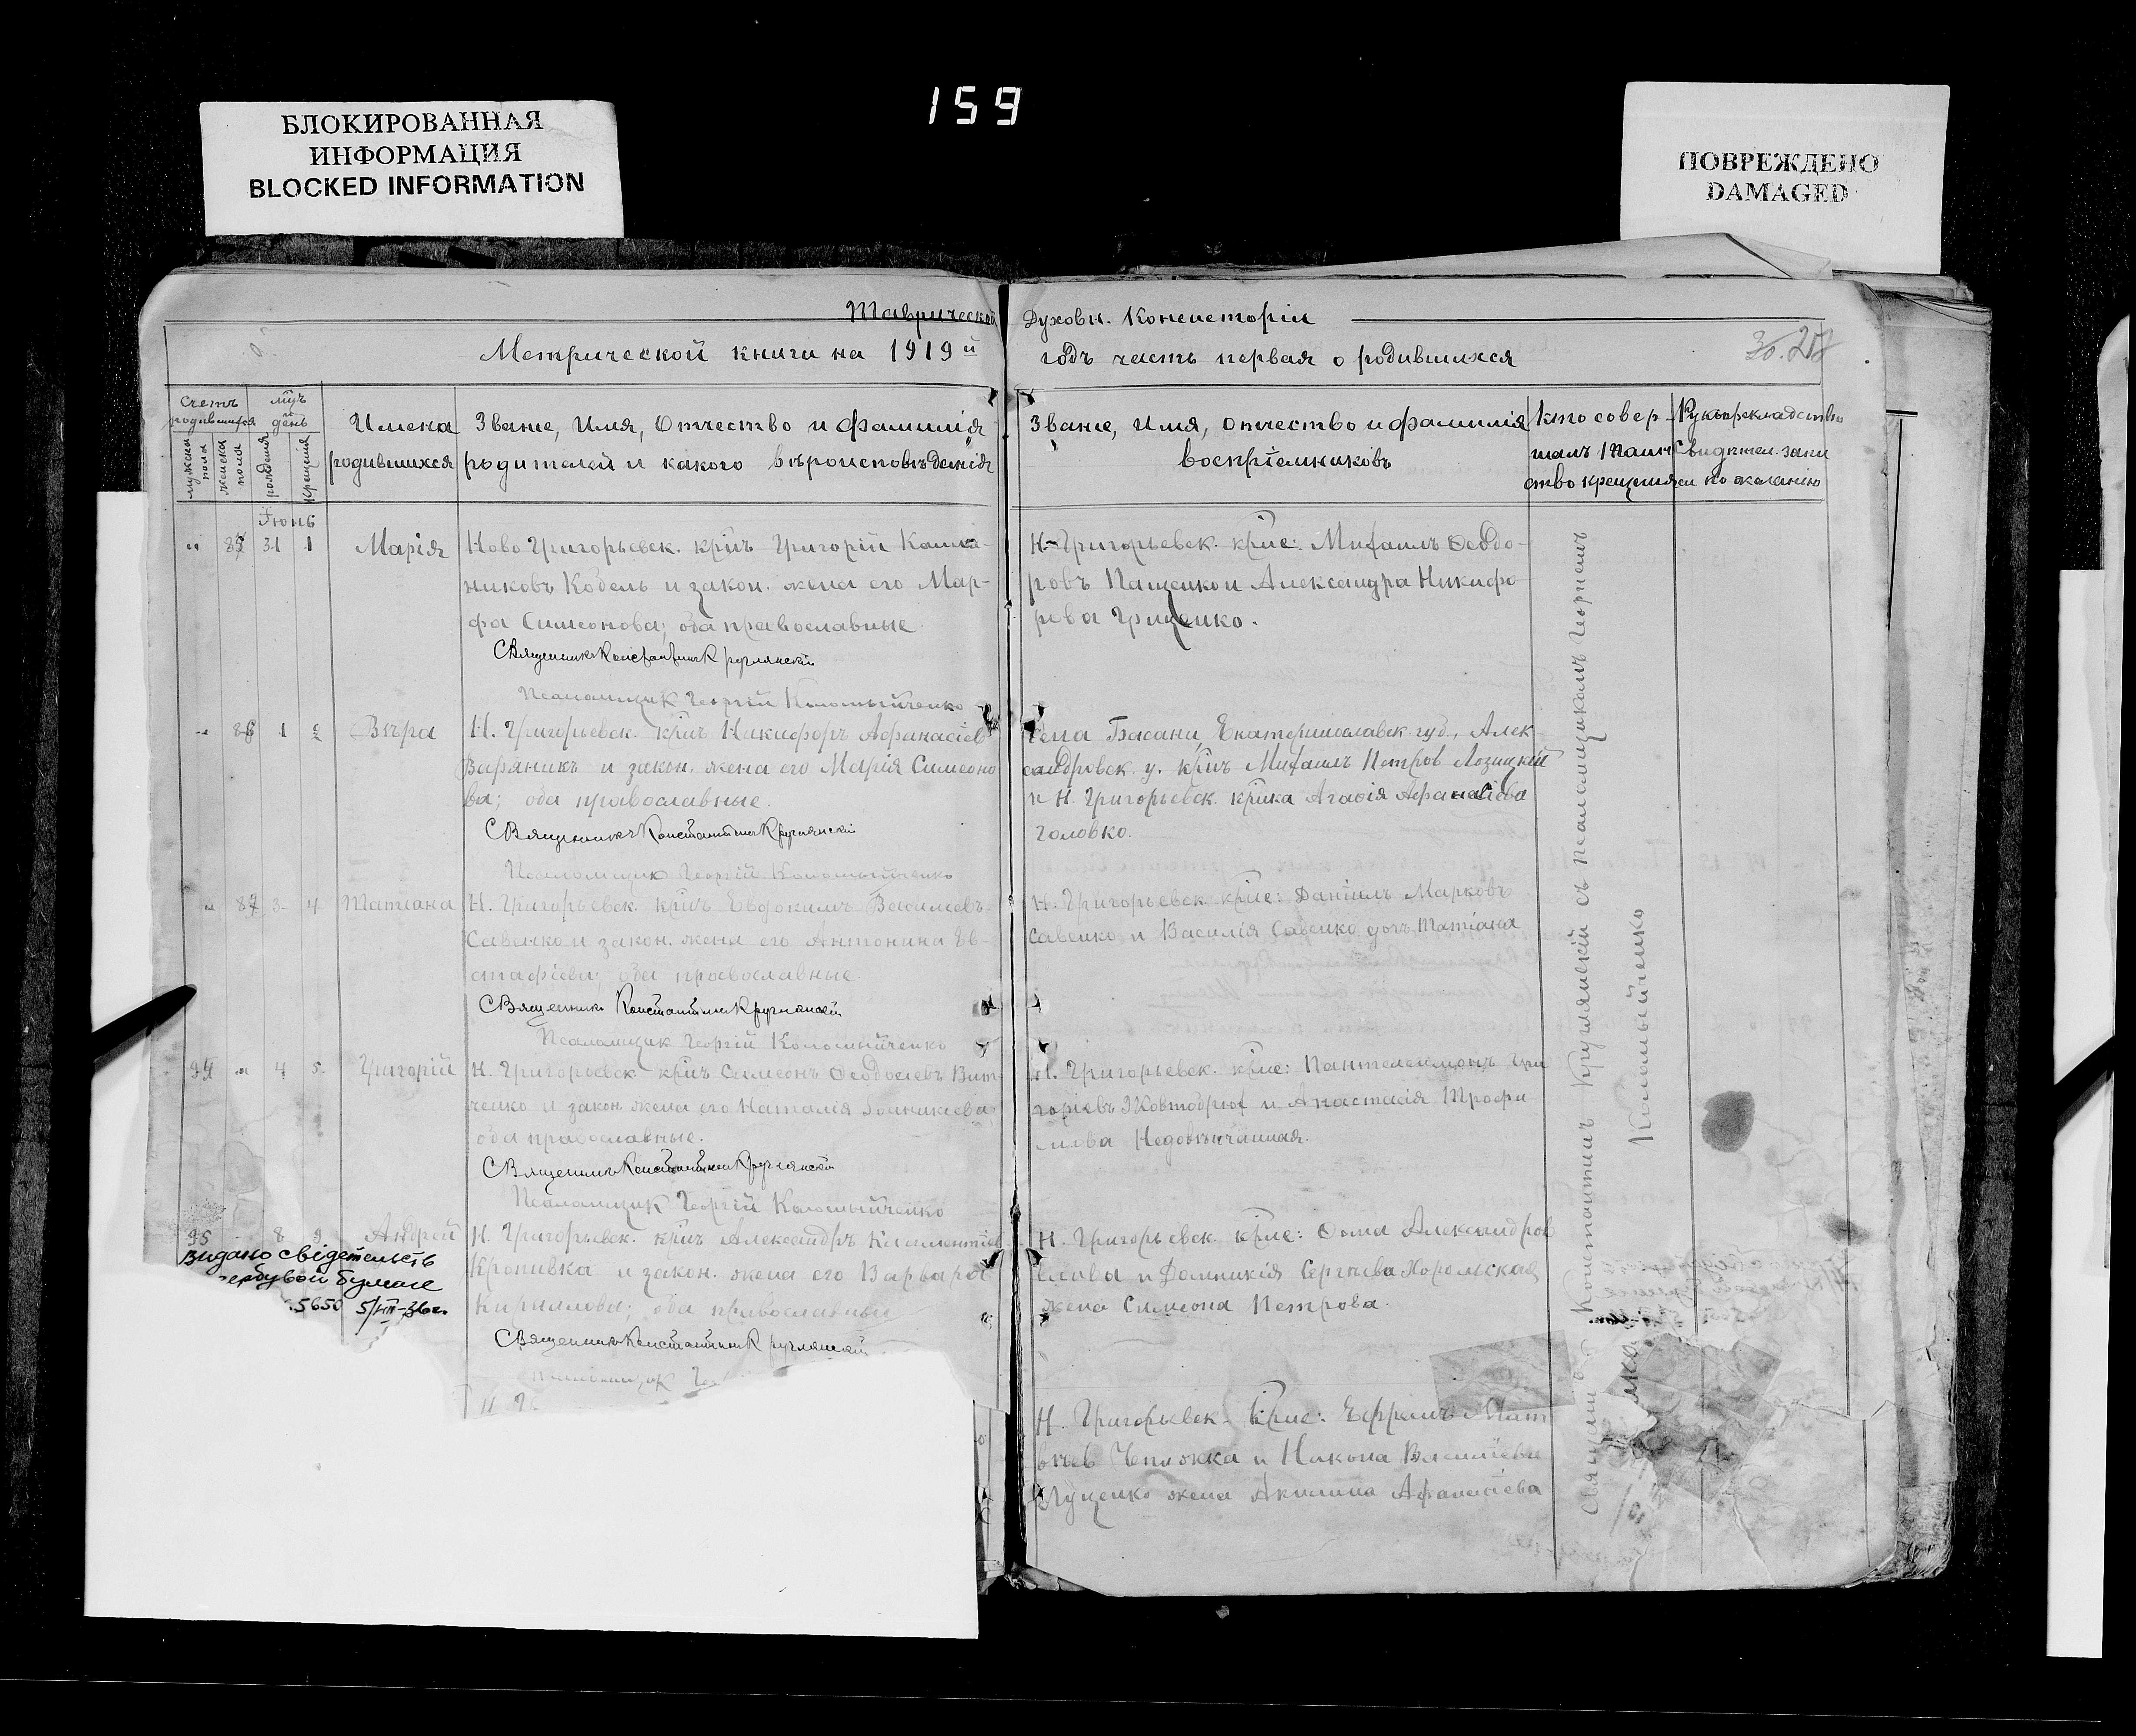 159
БЛОКИРОВАННАЯ
ИНФОРМАЦИЯ
BLOCKED INFORMATION
ПОВРЕЖДЕНО
DAMAGED
Таврической Духовн. Консисторіи
Метрической книги на 1919 й годъ часть первая о родившихся
Счетъ родившихся
мужска пола
женска пола
мцъ и день
рожденія
крещенія
Имена родившихся
Званіе, Имя, Отчество и фамилія
родителей и какого вѣроисповѣданія
Званіе, Имя, отчество и фамилія
воспріемниковъ
Кто совер-
шалъ таин
ство крещенія
Рукоприкладство
свидѣтел. запи
си по желанію
Іюнь
31 1 Марія
Ново Григорьевск. крнъ Григорій
никовъ Кобель и закон. жена его Мар-
фа Симеонова; оба православные.
Священникъ Константинъ Круглянскій
Псаломщик Георгій Коломыйченко
Н-Григорьевск. крне: Михаилъ Ѳеодо-
ровъ Пащенко и Александра Никифо
рова Гриценко.
1 2 Вѣра
Н. Григорьевск. крнъ Никифоръ Афанасіев
Варяникъ и закон. жена его Марія Симеоно
ва; оба православные.
Священникъ Константинъ Круглянскій
Псаломщик Георгій Коломыйченко
села Басани, Екатеринославск. губ., Алек
сандровск. у. крнъ Михаилъ Петров Лозицкій
и Н. Григорьевск. крнка Агафія Афанасіева
Головко.
3 4 Татіана
Н. Григорьевск. крнъ Евфокимъ Василіевъ
Савенко и закон. жена его Антонина Ев-
стафіева; оба православные.
Священникъ Константинъ Круглянскій
Псаломщик Георгій Коломыйченко
Н. Григорьевск. крне: Даніилъ Марковъ
Савенко и Василія Савенко дочь Татіана
94 4 5 Григорій
Н. Григорьевск. крнъ Симеонъ Ѳеодосіевъ Вит
ченко и закон. жена его Наталія
оба православные.
Священникъ Константинъ Круглянскій
Псаломщик Георгій Коломыйченко
Н. Григорьевск. крне: Пантелеимонъ Гри
горіевъ Жовтобрюх и Анастасія Трофи
мова Недовѣнчанная.
95 8 9 Андрей
Н. Григорьевск. крнъ Александръ Климентіев
Кропивка и закон. жена его Варвара
Кириллова; оба православные
Священникъ Константинъ Круглянскій
Н. Григорьевск. крне: Ѳома Александров
и Домникія Сергѣева Хорольская
жена Симеона Петрова.
Видано свідетельств
гербувой бумаге
5650 5/VIII-36г.
Н. Григорьевск. крне: Ефремъ Мат
вѣев Чепижка и Никона Василіева
Луценко жена Акилина Афанасіева
Священникъ Константинъ Круглянскій съ псаломщикомъ Георгіемъ
Коломыйченко